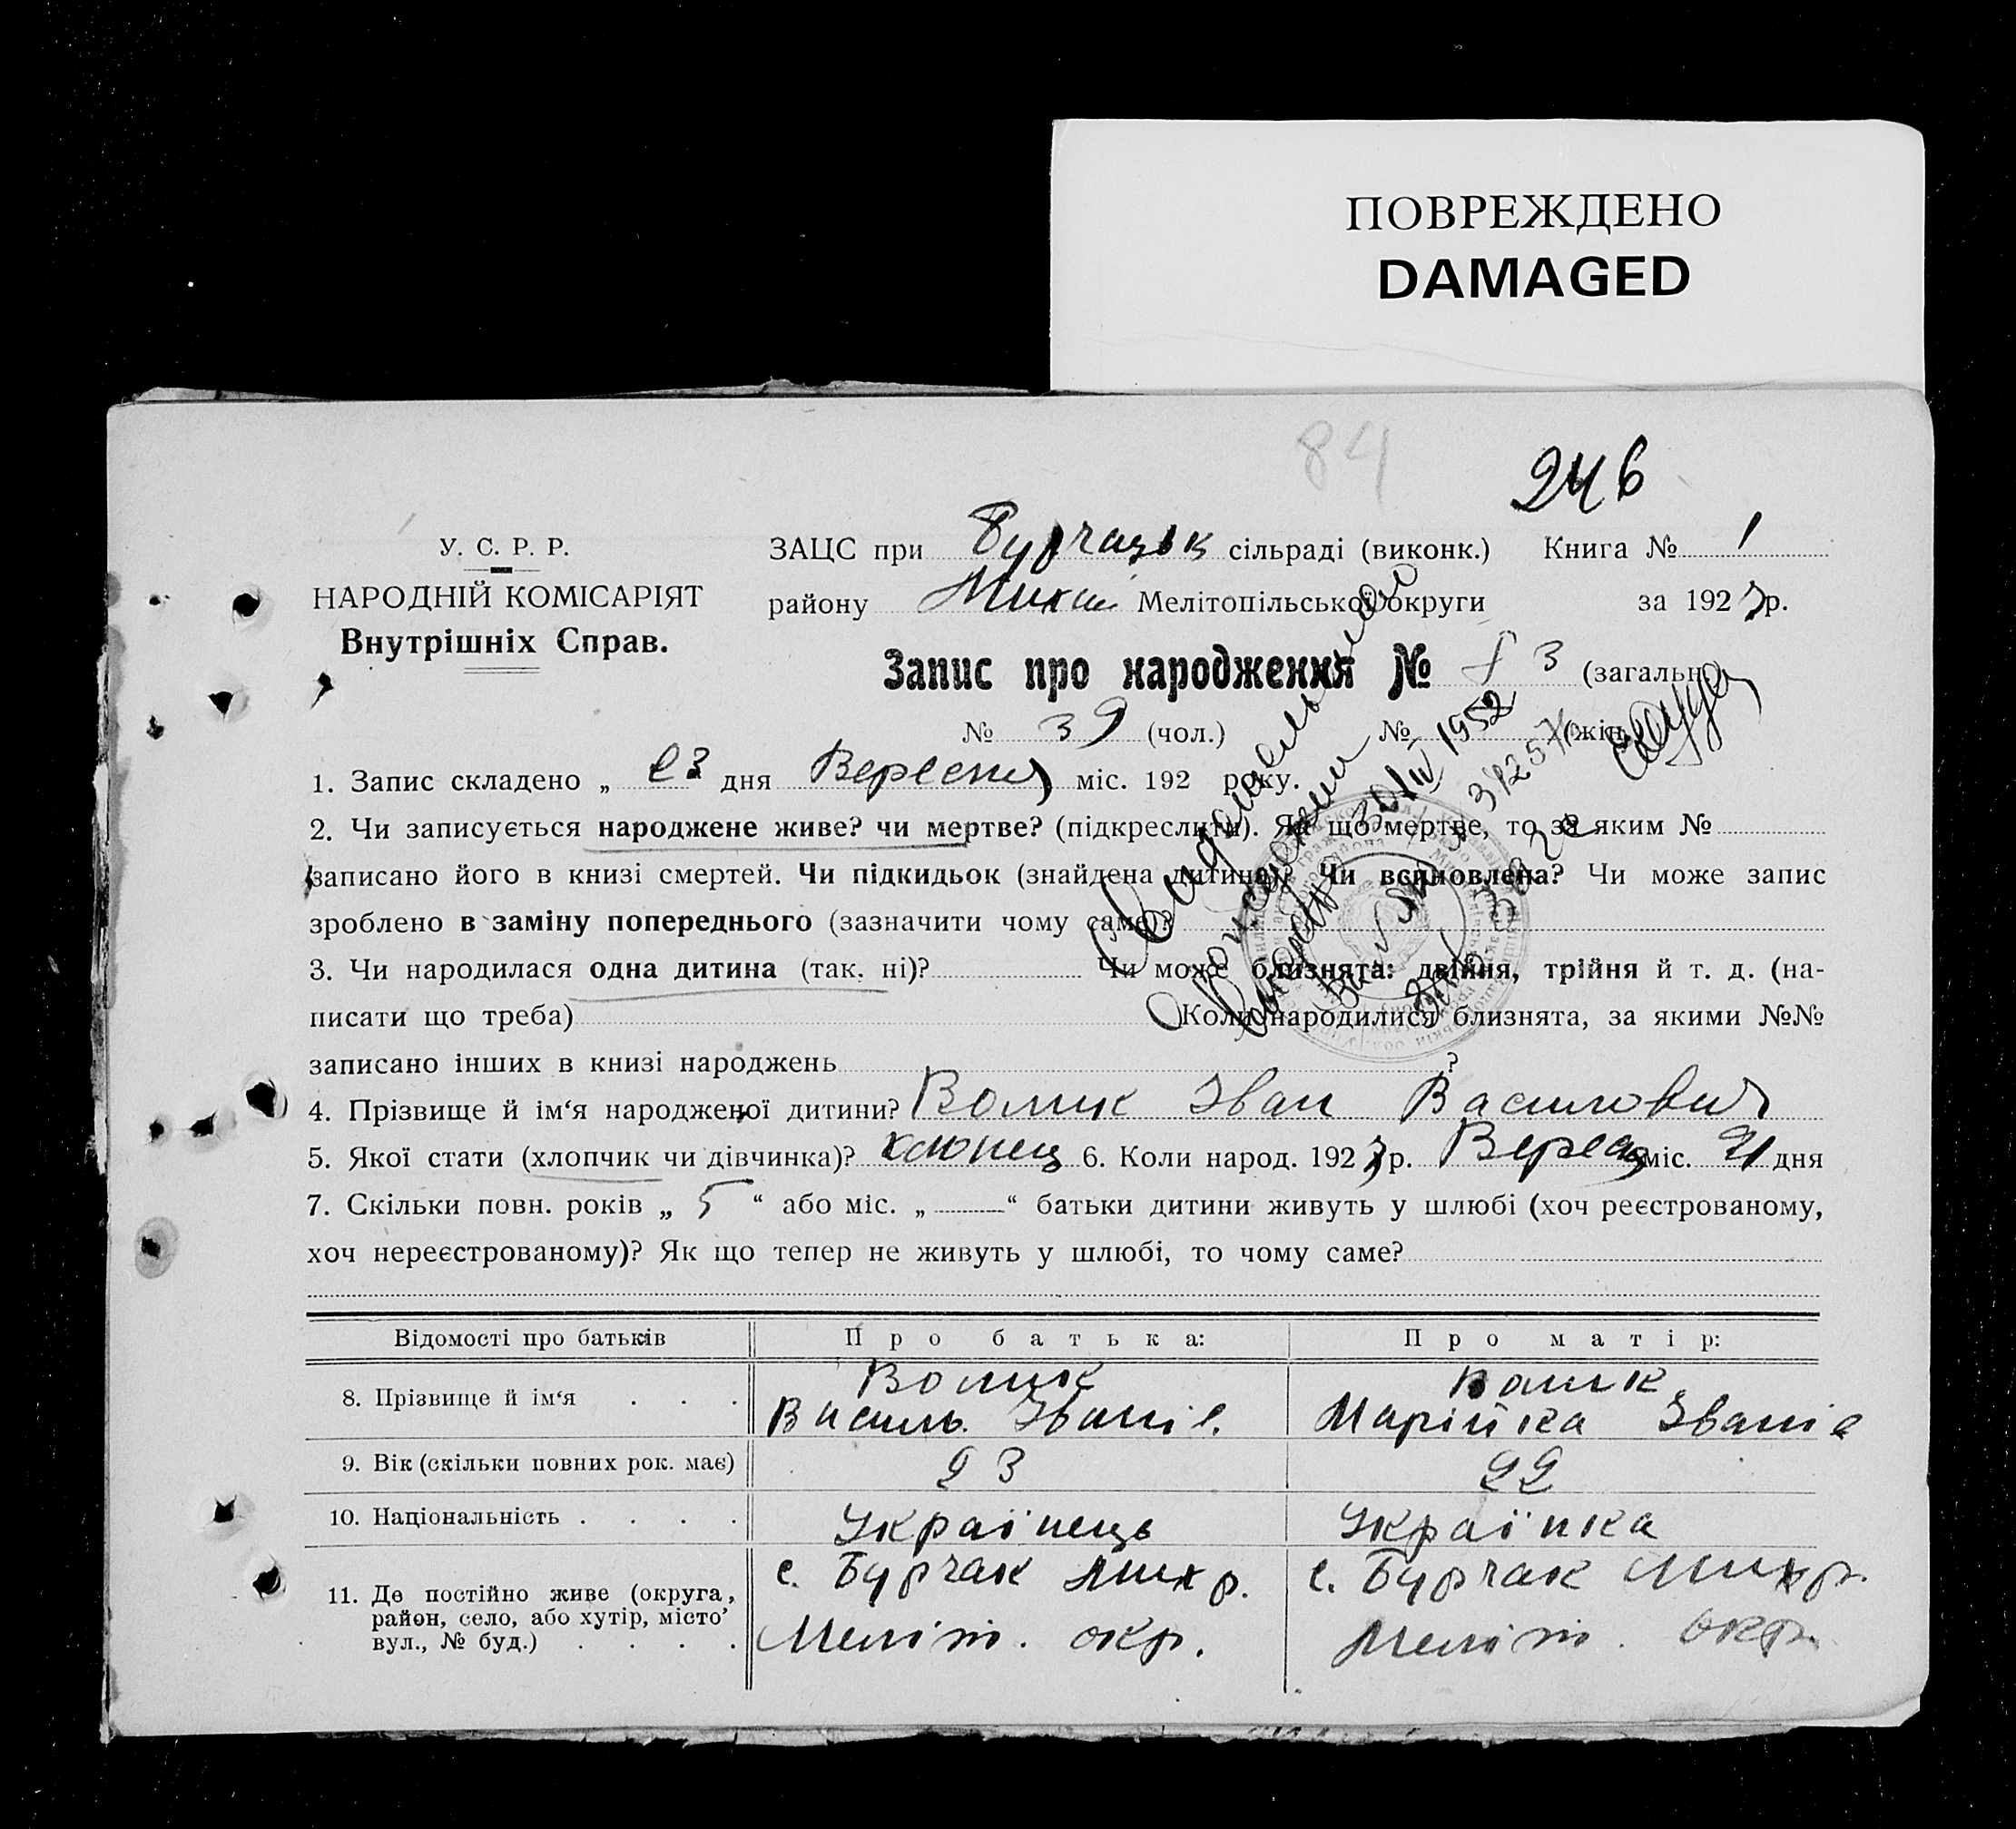 ПОВРЕЖДЕНО
DAMAGED
84
246
У. С. Р. Р.
НАРОДНІЙ КОМІСАРІЯТ
Внутрішніх Справ.
ЗАЦС при Бурчацьк сільраді (виконк.) Книга № 1
району Миха Мелітопільської округи за 1927 р.
Запис про народження № 83 (загальн.)
№ 39 (чол.) № (жін.)
1. Запис складено „ 23 дня Вересня міс. 192 року.
2. Чи записується народжене живе? чи мертве? (підкреслити). Як що мертве, то за яким №
записано його в книзі смертей. Чи підкидьок (знайдена дитина)? Чи всиновлена? Чи може запис
зроблено в заміну попереднього (зазначити чому саме)?
3. Чи народилася одна дитина (так. ні)? Чи може близнята: двійня, трійня й т. д. (на-
писати що треба) Коли народилися близнята, за якими №№
записано інших в книзі народжень ?
30/IV 1952
4. Прізвище й ім‘я народженої дитини? Волик Іван Василович
5. Якої стати (хлопчик чи дівчинка)? хлопец 6. Коли народ. 1927 р. Верес міс. 21 дня
7. Скільки повн. років „ 5 “ або міс. „ — “ батьки дитини живуть у шлюбі (хоч реєстрованому,
хоч нереєстрованому)? Як що тепер не живуть у шлюбі, то чому саме?
Відомості про батьків Про батька: Про матір:
8. Прізвище й ім‘я . . . Волик Волик
Василь Іваніс. Марійка Іваніс
9. Вік (скільки повних рок. має) 23 22
10. Національність . . . . Українець Українка
11. Де постійно живе (округа, с. Бурчак Мих р. с. Бурчак Мих р.
район, село, або хутір, місто’
вул., № буд.) . . . . Меліт. окр. Меліт. окр.